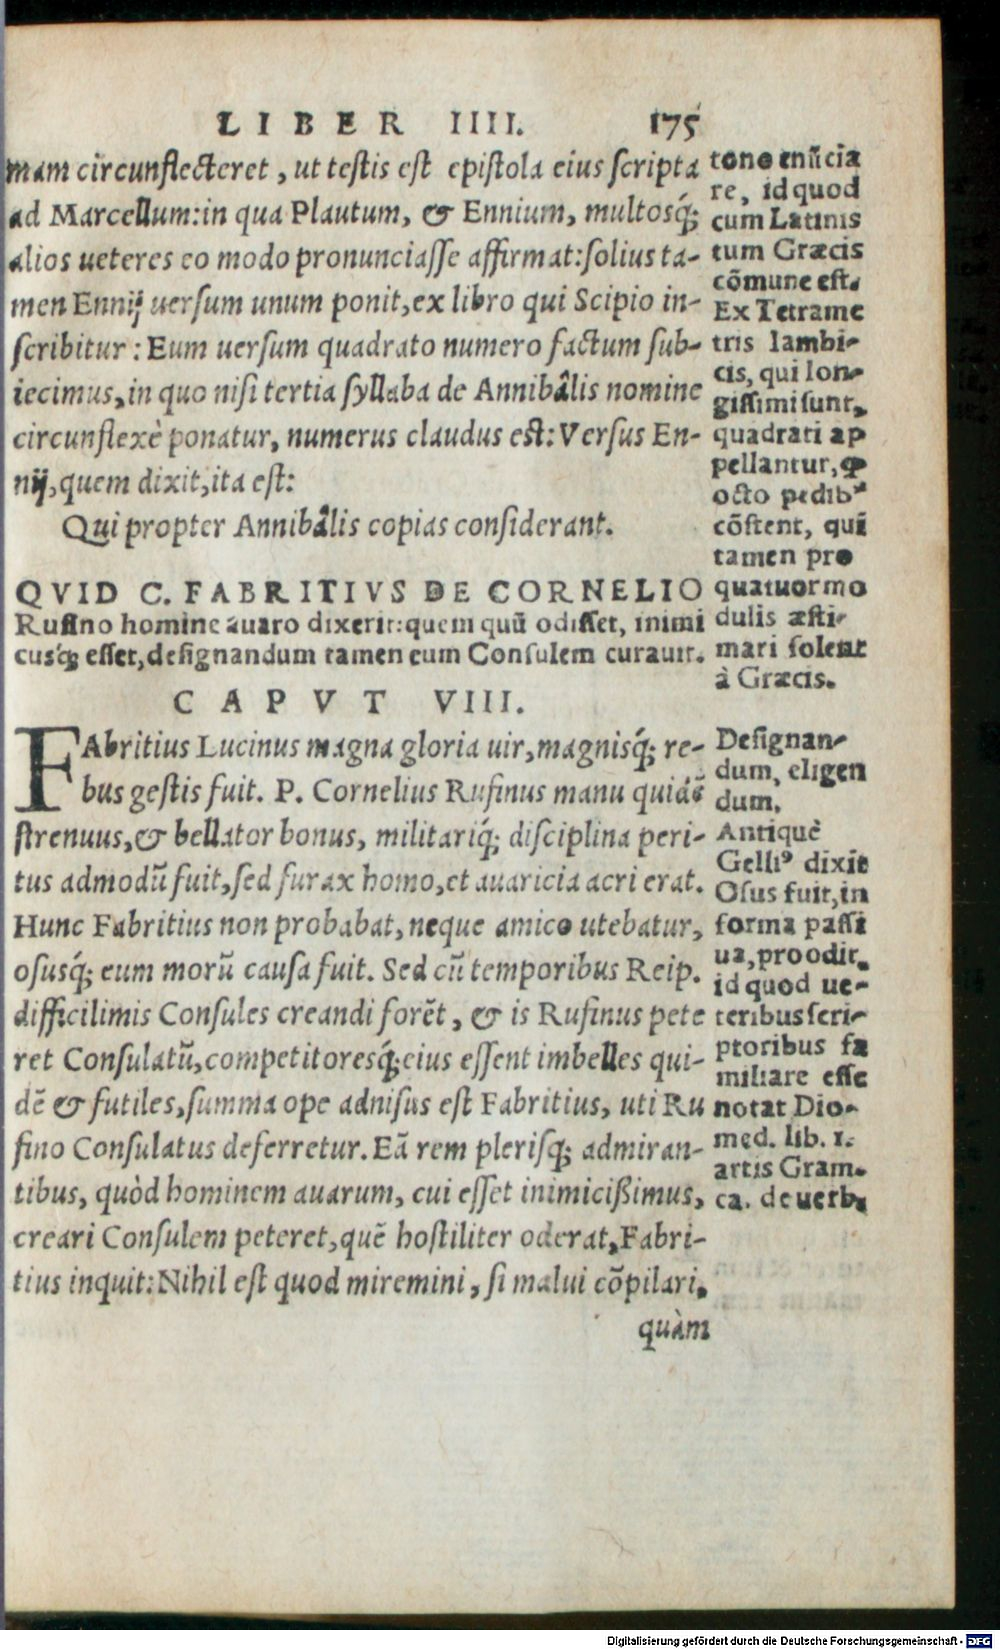 LIBER IIII. 175
mam circunflecteret, ut testis est epistola eius scripta
ad Marcellum: in qua Plautum, & Ennium, multosq́;
alios ueteres eo modo pronunciasse affirmat: solius ta-
men Ennij uersum unum ponit, ex libro qui Scipio in-
scribitur: Eum uersum quadrato numero factum sub-
iecimus, in quo nisi tertia syllaba de Annibâlis nomine
circunflexè ponatur, numerus claudus est: Versus En-
nij, quem dixit, ita est:
Qui propter Annibâlis copias considerant.
QVID C. FABRITIVS DE CORNELIO
Rufino homine auaro dixerit: quem quũ odisset, inimi
cusq́; esset, designandum tamen eum Consulem curauit.
CAPVT VIII.
FAbritius Lucinus magna gloria uir, magnisq́; re-
bus gestis fuit. P. Cornelius Rufinus manu quidẽ
strenuus, & bellator bonus, militariq́; disciplina peri-
tus admodũ fuit, sed furax homo, et auaricia acri erat.
Hunc Fabritius non probabat, neque amico utebatur,
osusq́; eum morũ causa fuit. Sed cũ temporibus Reip.
difficilimis Consules creandi forẽt, & is Rufinus pete
ret Consulatũ, competitoresq́; eius essent imbelles qui-
dẽ & futiles, summa ope adnisus est Fabritius, uti Ru
fino Consulatus deferretur. Eã rem plerisq; admiran-
tibus, quòd hominem auarum, cui esset inimicißimus,
creari Consulem peteret, quẽ hostiliter oderat, Fabri-
tius inquit: Nihil est quod miremini, si malui cõpilari,
quàm
tono enũcia
re, id quod
cum Latinis
tum Græcis
cõmune est.
Ex Tetrame
tris Iambi-
cis, qui lon-
gissimi sunt,
quadrati ap
pellantur, ꝙ
octo pedibꝰ
cõstent, qui
tamen pro
quatuor mo
dulis æsti-
mari solent
à Græcis.
Designan-
dum, eligen
dum.
Antiquè
Gelliꝰ dixit
Osus fuit, in
forma passi
ua, pro odit,
id quod ue-
teribus scri-
ptoribus fa
miliare esse
notat Dio-
med. lib. 1.
artis Gram-
ca. de uerb.
Digitalisierung gefördert durch die Deutsche Forschungsgemeinschaft - DFG